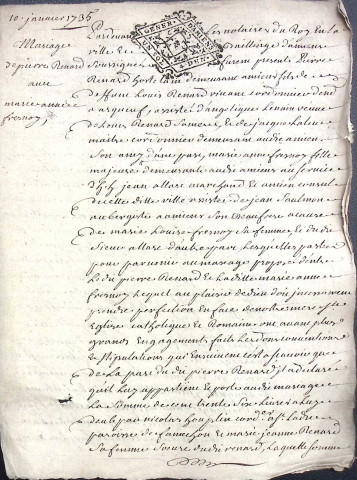 10. janvier 1736
Mariage
de pierre Renard
avec
marie anne
fresnoy
Pardevant les notaires du Roy en la
ville &
Soussignez furent presents Pierre
Renard demeurant amiens fils de
deffunt Louis Renard vivant cordonnier dem.t
assisté d'angelique Lenain veuve
de Louis Renard Sa mere, & de jacque
maitre cordonnier demeurant audit amiens
Son amy d'une part, marie anne fresnoy fille
majeure demeurante audit amiens au service
de jean allart marchand & ancien consul
de cette ditte ville assistée de jean Saulmon
aubergiste a amiens son Beaufrere acause
de marie Louise fresnoy sa femme, & dudit
Sieur allart d'autre part Lesquelles parties
pour parvenir au mariage proposé d'entre
Le dit pierre Renard & Laditte marie anne
fresnoy Lequel au plaisir de Dieu doit
prendre perfection en face de notre mere Ste
Eglise catholique & Romaine ont avant plus
grands Engagements faits Les donnons conventions
& stipulations qui Ensuivent cest a scavoir que
de La part dudit pierre Renard il a declaré
quil Luy appartient & porte audit mariage
La Somme de cent trente six Livres a Luy
par nicolas
paroisse de & marie jeanne Renard
Sa femme Soeure dudit Renard, Laquelle Somme